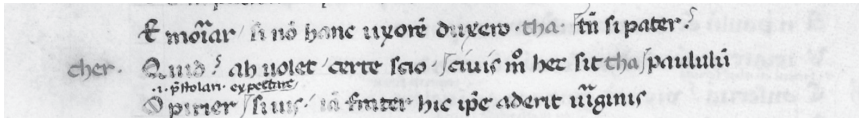 E moriar si nō hanc uxorē duxero · tha · tn̄ si pater ?
cher · Quid ? ah uolet certe scio ciuis m̊ hec sit tha paululū
.i. p̄stolari · expectare
Opirier si uis iā frater hic ip̄e aderit uirginis